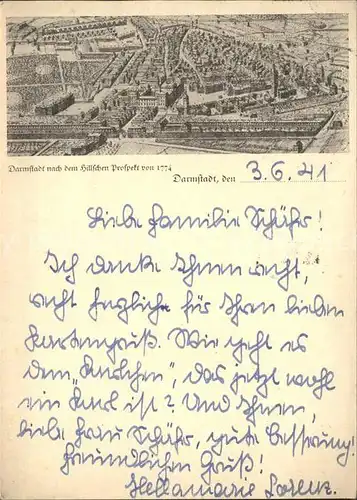 Darmstadt nach dem Hillschen Prospekt von 1774
Darmstadt, den 3.6.41
Liebe Familie Schäfer!
Ich danke Ihnen recht,
recht herzliche für Ihren lieben
Kartengruß. Wie geht es
dem „Karlchen“, das jetzt wohl
ein Karl ist? Und Ihnen,
liebe Frau Schäfer, gute Besserung!
Freundlichen Gruß!
Hellamarie Lorenz.